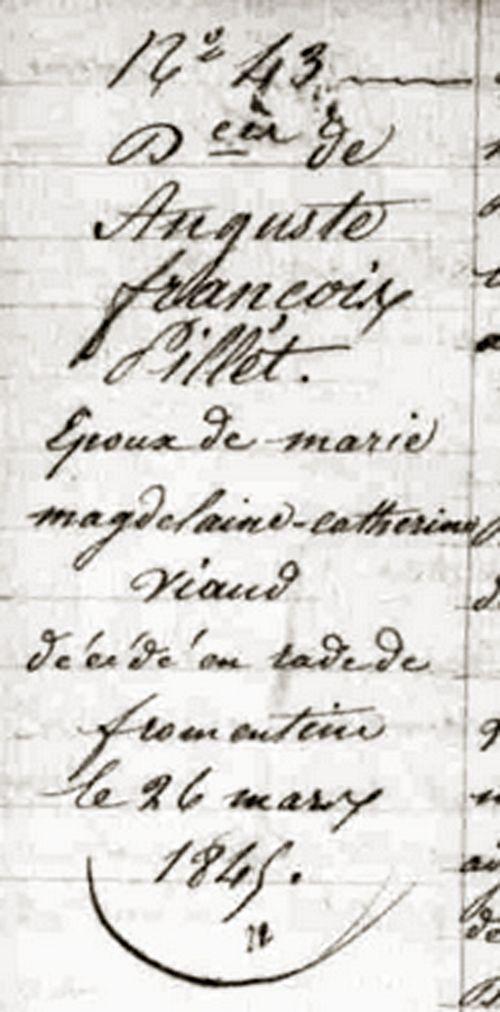 N.º 43.
Dcès de
Auguste
françois
Pillet.
Epoux de marie
magdelaine-catherine
Viaud
décédé en rade de
fromentine
le 26 mars
1845.